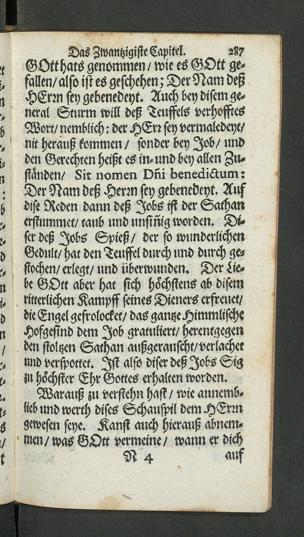 Das Zwantzigiste Capitel. 287
GOtt hats genommen / wie es GOtt ge-
fallen / also ist es geschehen; Der Nam deß
HErn sey gebenedeyt. Auch bey disem ge-
neral Sturm will deß Teuffels verhofftes
Wort / nemblich: der HErr sey vermaledeyt /
nit herauß kommen / sonder bey Job / und
den Gerechten heißt es in- und bey allen Zu-
ständen / Sit nomen Dñi benedictum:
Der Nam deß Herrn sey gebenedeyt. Auf
dise Reden dann deß Jobs ist der Sathan
erstummet / taub und unsiñig worden. Di-
ser deß Jobs Spieß / der so wunderlichen
Gedult / hat den Teuffel durch und durch ge-
stochen / erlegt / und überwunden. Der Lie-
be GOtt aber hat sich höchstens ab disem
ritterlichen Kampff seines Dieners erfreuet /
die Engel gefrolocket / das gantze Himmlische
Hofgesind dem Job gratuliert / herentgegen
den stoltzen Sathan außgerauscht / verlachet
und verspottet. Ist also diser deß Jobs Sig
zu höchster Ehr Gottes erhalten worden.
Warauß zu verstehn hast / wie annemb-
lich und werth dises Schauspil dem HErrn
gewesen seye. Kanst auch hierauß abnem-
men / was GOtt vermeine / wann er dich
N 4 auf